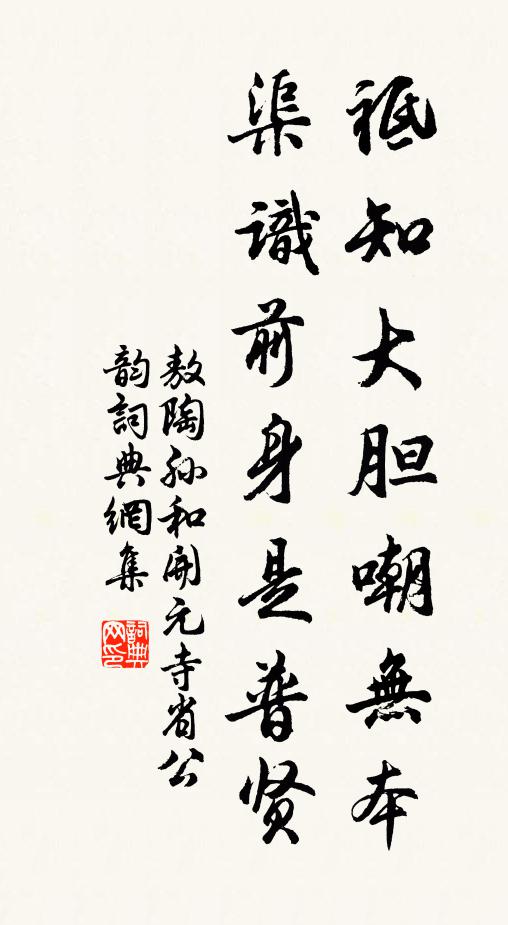 祗知大胆嘲無本
渠識前身是普贤
敖陶孙和開元寺省公
韵詞典網集
詞典网印